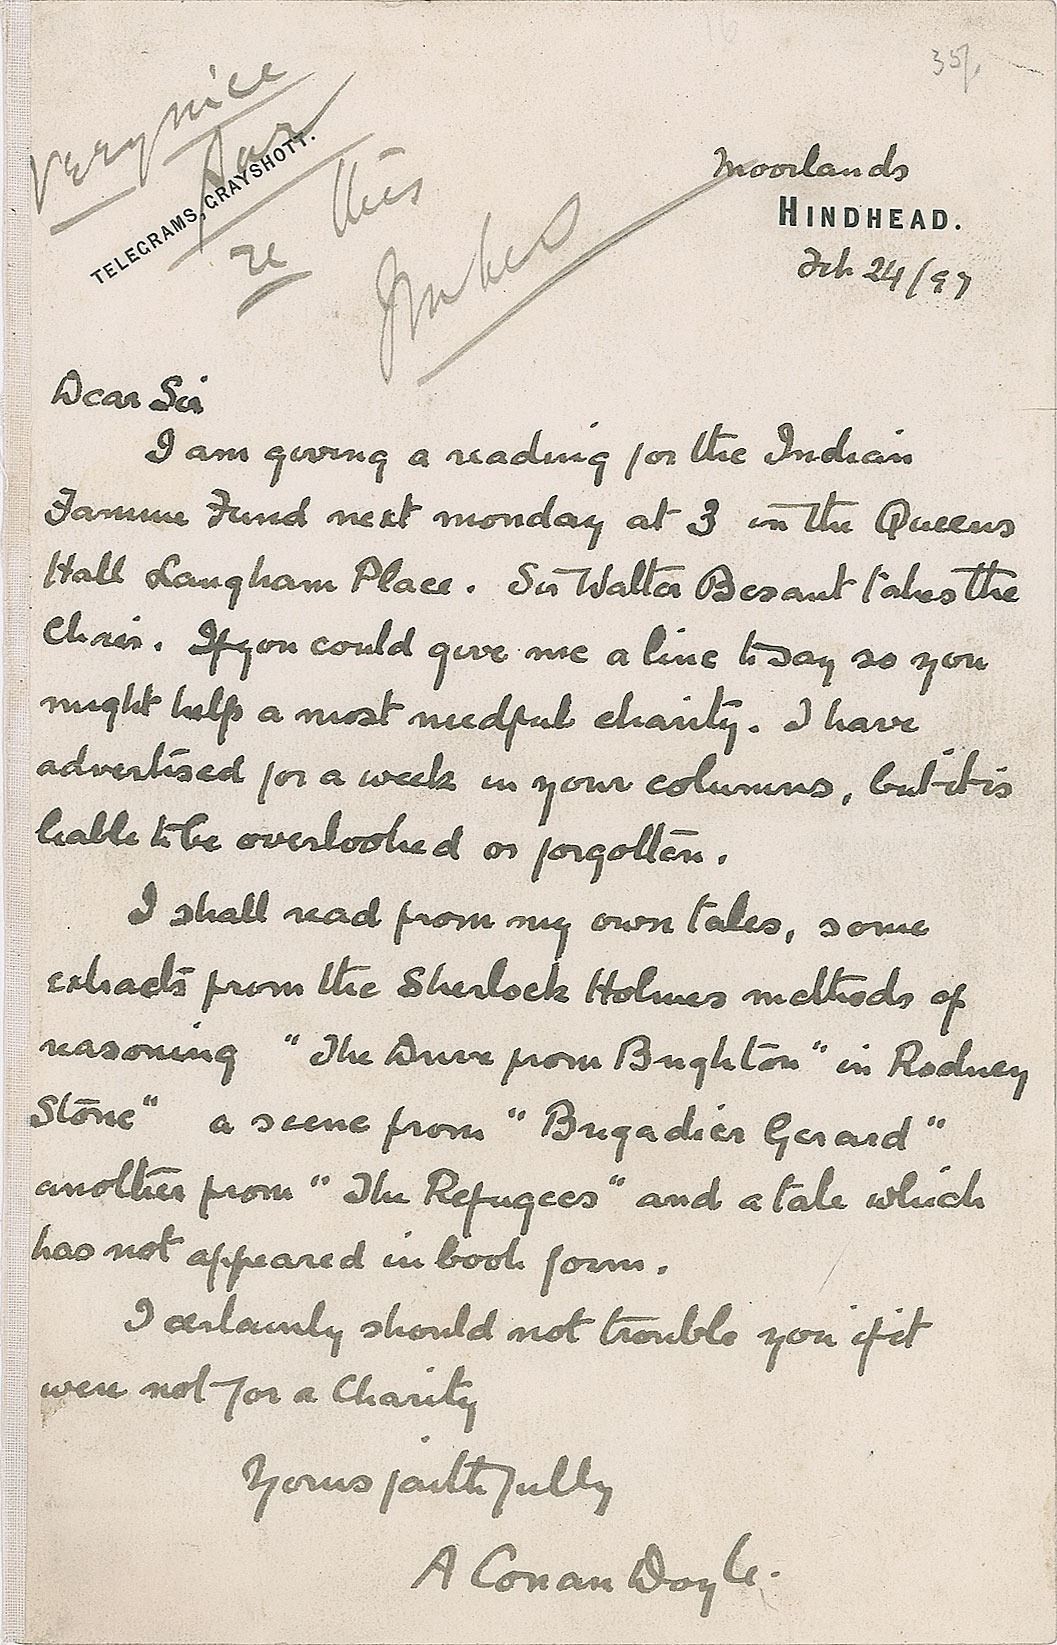 35/.
Very nice
par
TELEGRAMS, GRAYSHOTT.
re this
Moorlands
HINDHEAD.
Feb 24/97
Dear Sir
I am giving a reading for the Indian
Famine Fund next monday at 3 in the Queens
Hall Langham Place. Sir Walter Besant takes the
Chair. If you could give me a line to say so you
might help a most needful charity. I have
advertised for a week in your columns, but it is
liable to be overlooked or forgotten.
I shall read from my own tales, some
extracts from the Sherlock Holmes methods of
reasoning "The Drive from Brighton" in Rodney
Stone" a scene from "Brigadier Gerard"
another from "The Refugees" and a tale which
has not appeared in book form.
I certainly should not trouble you if it
were not for a Charity
Yours faithfully
A Conan Doyle.